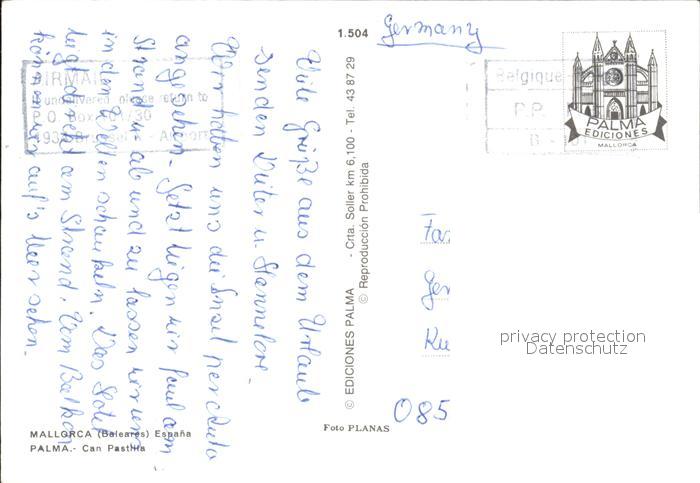 1.504
Germany
Viele Grüße aus dem Urlaub
senden Dieter u. Hannelore.
Wir haben uns die Insel per Auto
angesehen. Jetzt liegen wir faul am
Strand u. ab und zu lassen wir uns
in den Wellen schaukeln. Das Hotel
liegt direkt am Strand. Vom Balkon
können wir auf's Meer sehen.
AIRMAIL
If undelivered please return to
P.O. Box
© EDICIONES PALMA - Crta. Soller km 6,100 - Tel. 43 87 29
© Reproducción Prohibida
Belgique
P.P.
B -
PALMA
EDICIONES
MALLORCA
Fa
Ger
Ku
085
privacy protection
Datenschutz
Foto PLANAS
MALLORCA (Baleares) España
PALMA.- Can Pastilla